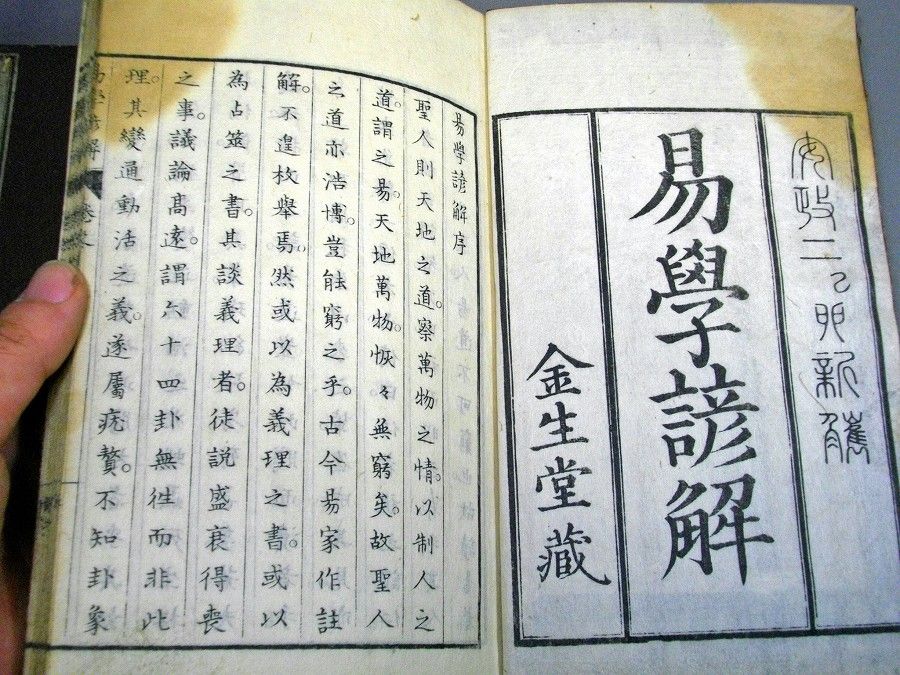 安政二乙卯新
易學諺解
金生堂藏
易學諺解序
聖人則天地之道。察萬物之情。以制人之
道。謂之易。天地萬物。恢々無窮矣。故聖人
之道亦浩博。豈能窮之乎。古今易家作註
解。不遑枚舉焉。然或以為義理之書。或以
為占筮之書。其談義理者。徒說盛衰得喪
之事。議論髙遠。謂六十四卦無徃而非此
理。其變通動活之義。遂屬疣贅。不知卦象
易學諺解